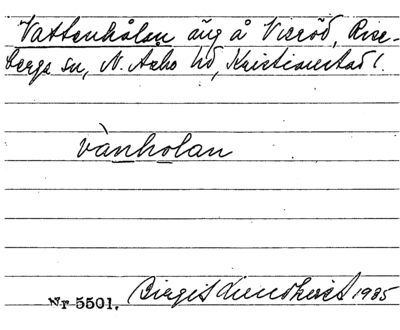 Vattenhålan äng å Vieröd, Rise-
berga sn, N. Åsbo hd, Kristianstad l.
vànholan
Nr 5501. Birgit Lundkvist 1985